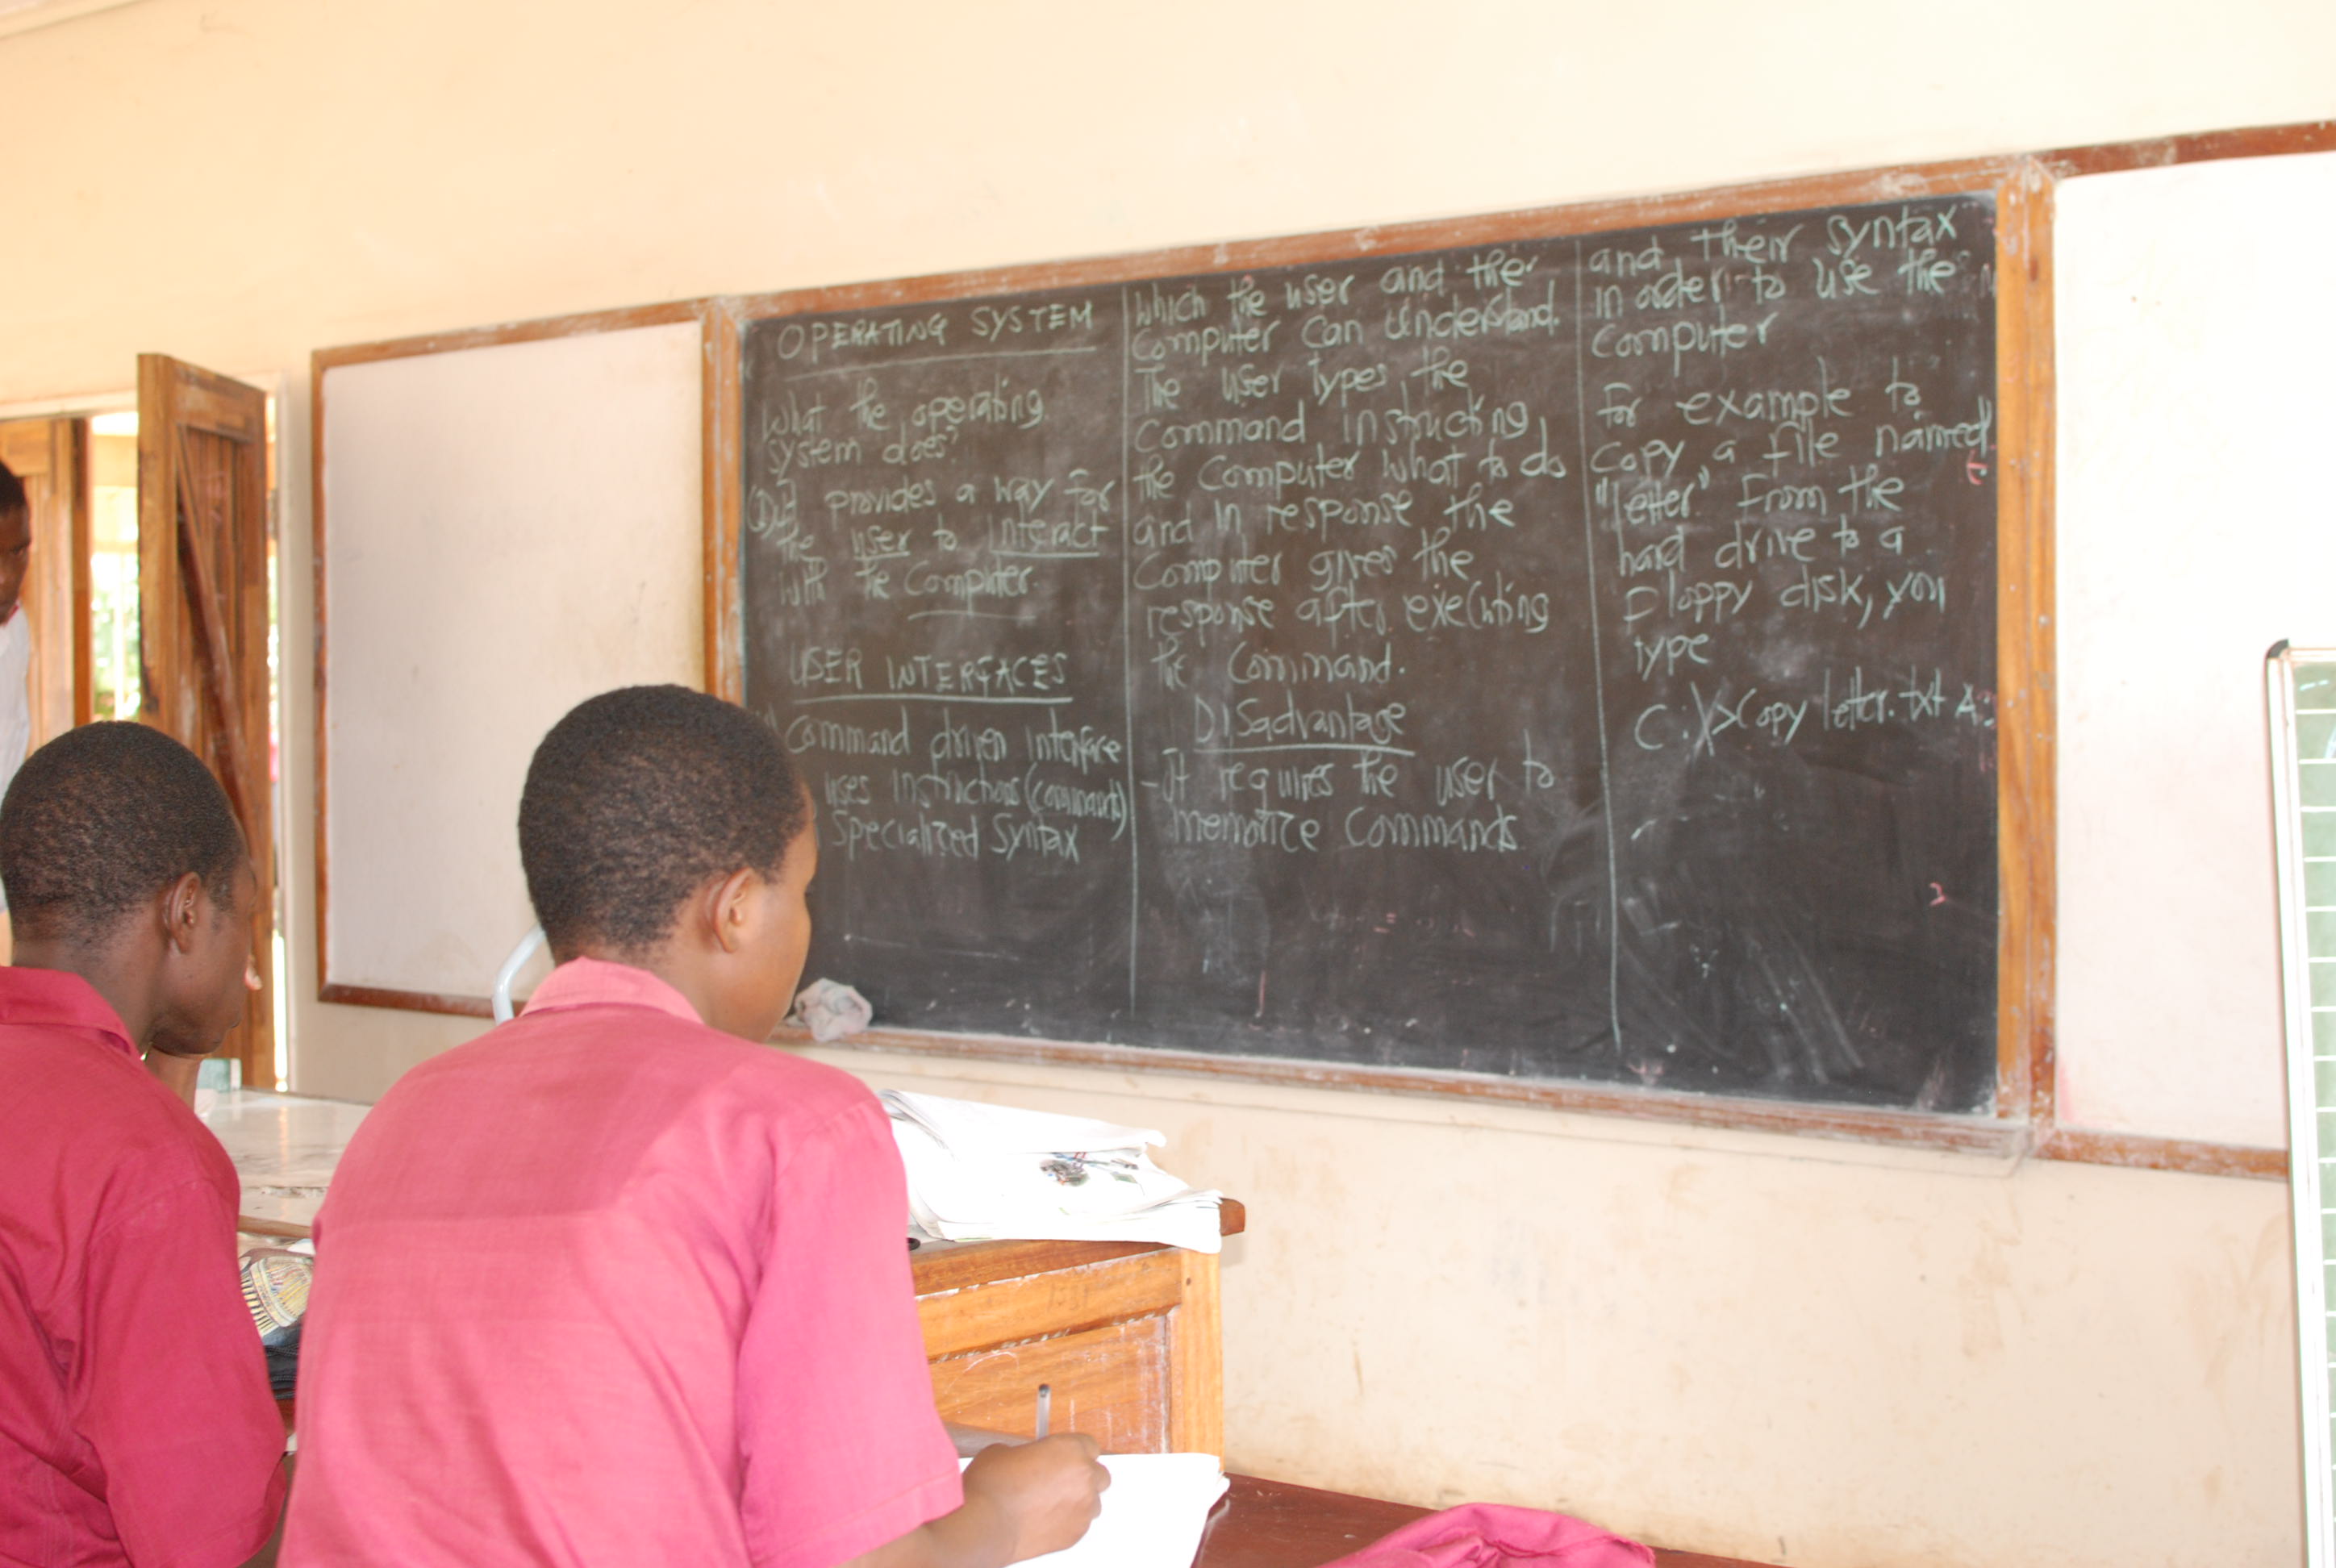 OPERATING SYSTEM
What the operating
system does?
(1) It provides a way for
the user to interact
with the Computer.
USER INTERFACES
Command driven interface
uses instructions (commands)
Specialized Syntax
which the user and the
Computer Can understand.
The user types the
Command instructing
the Computer what to do
and in response the
Computer gives the
response after executing
the Command.
Disadvantage
- It requires the user to
memorize Commands
and their syntax
in order to use the
Computer
for example to
copy a file named
"letter" from the
hard drive to a
floppy disk, you
type
C:\>Copy letter.txt A: